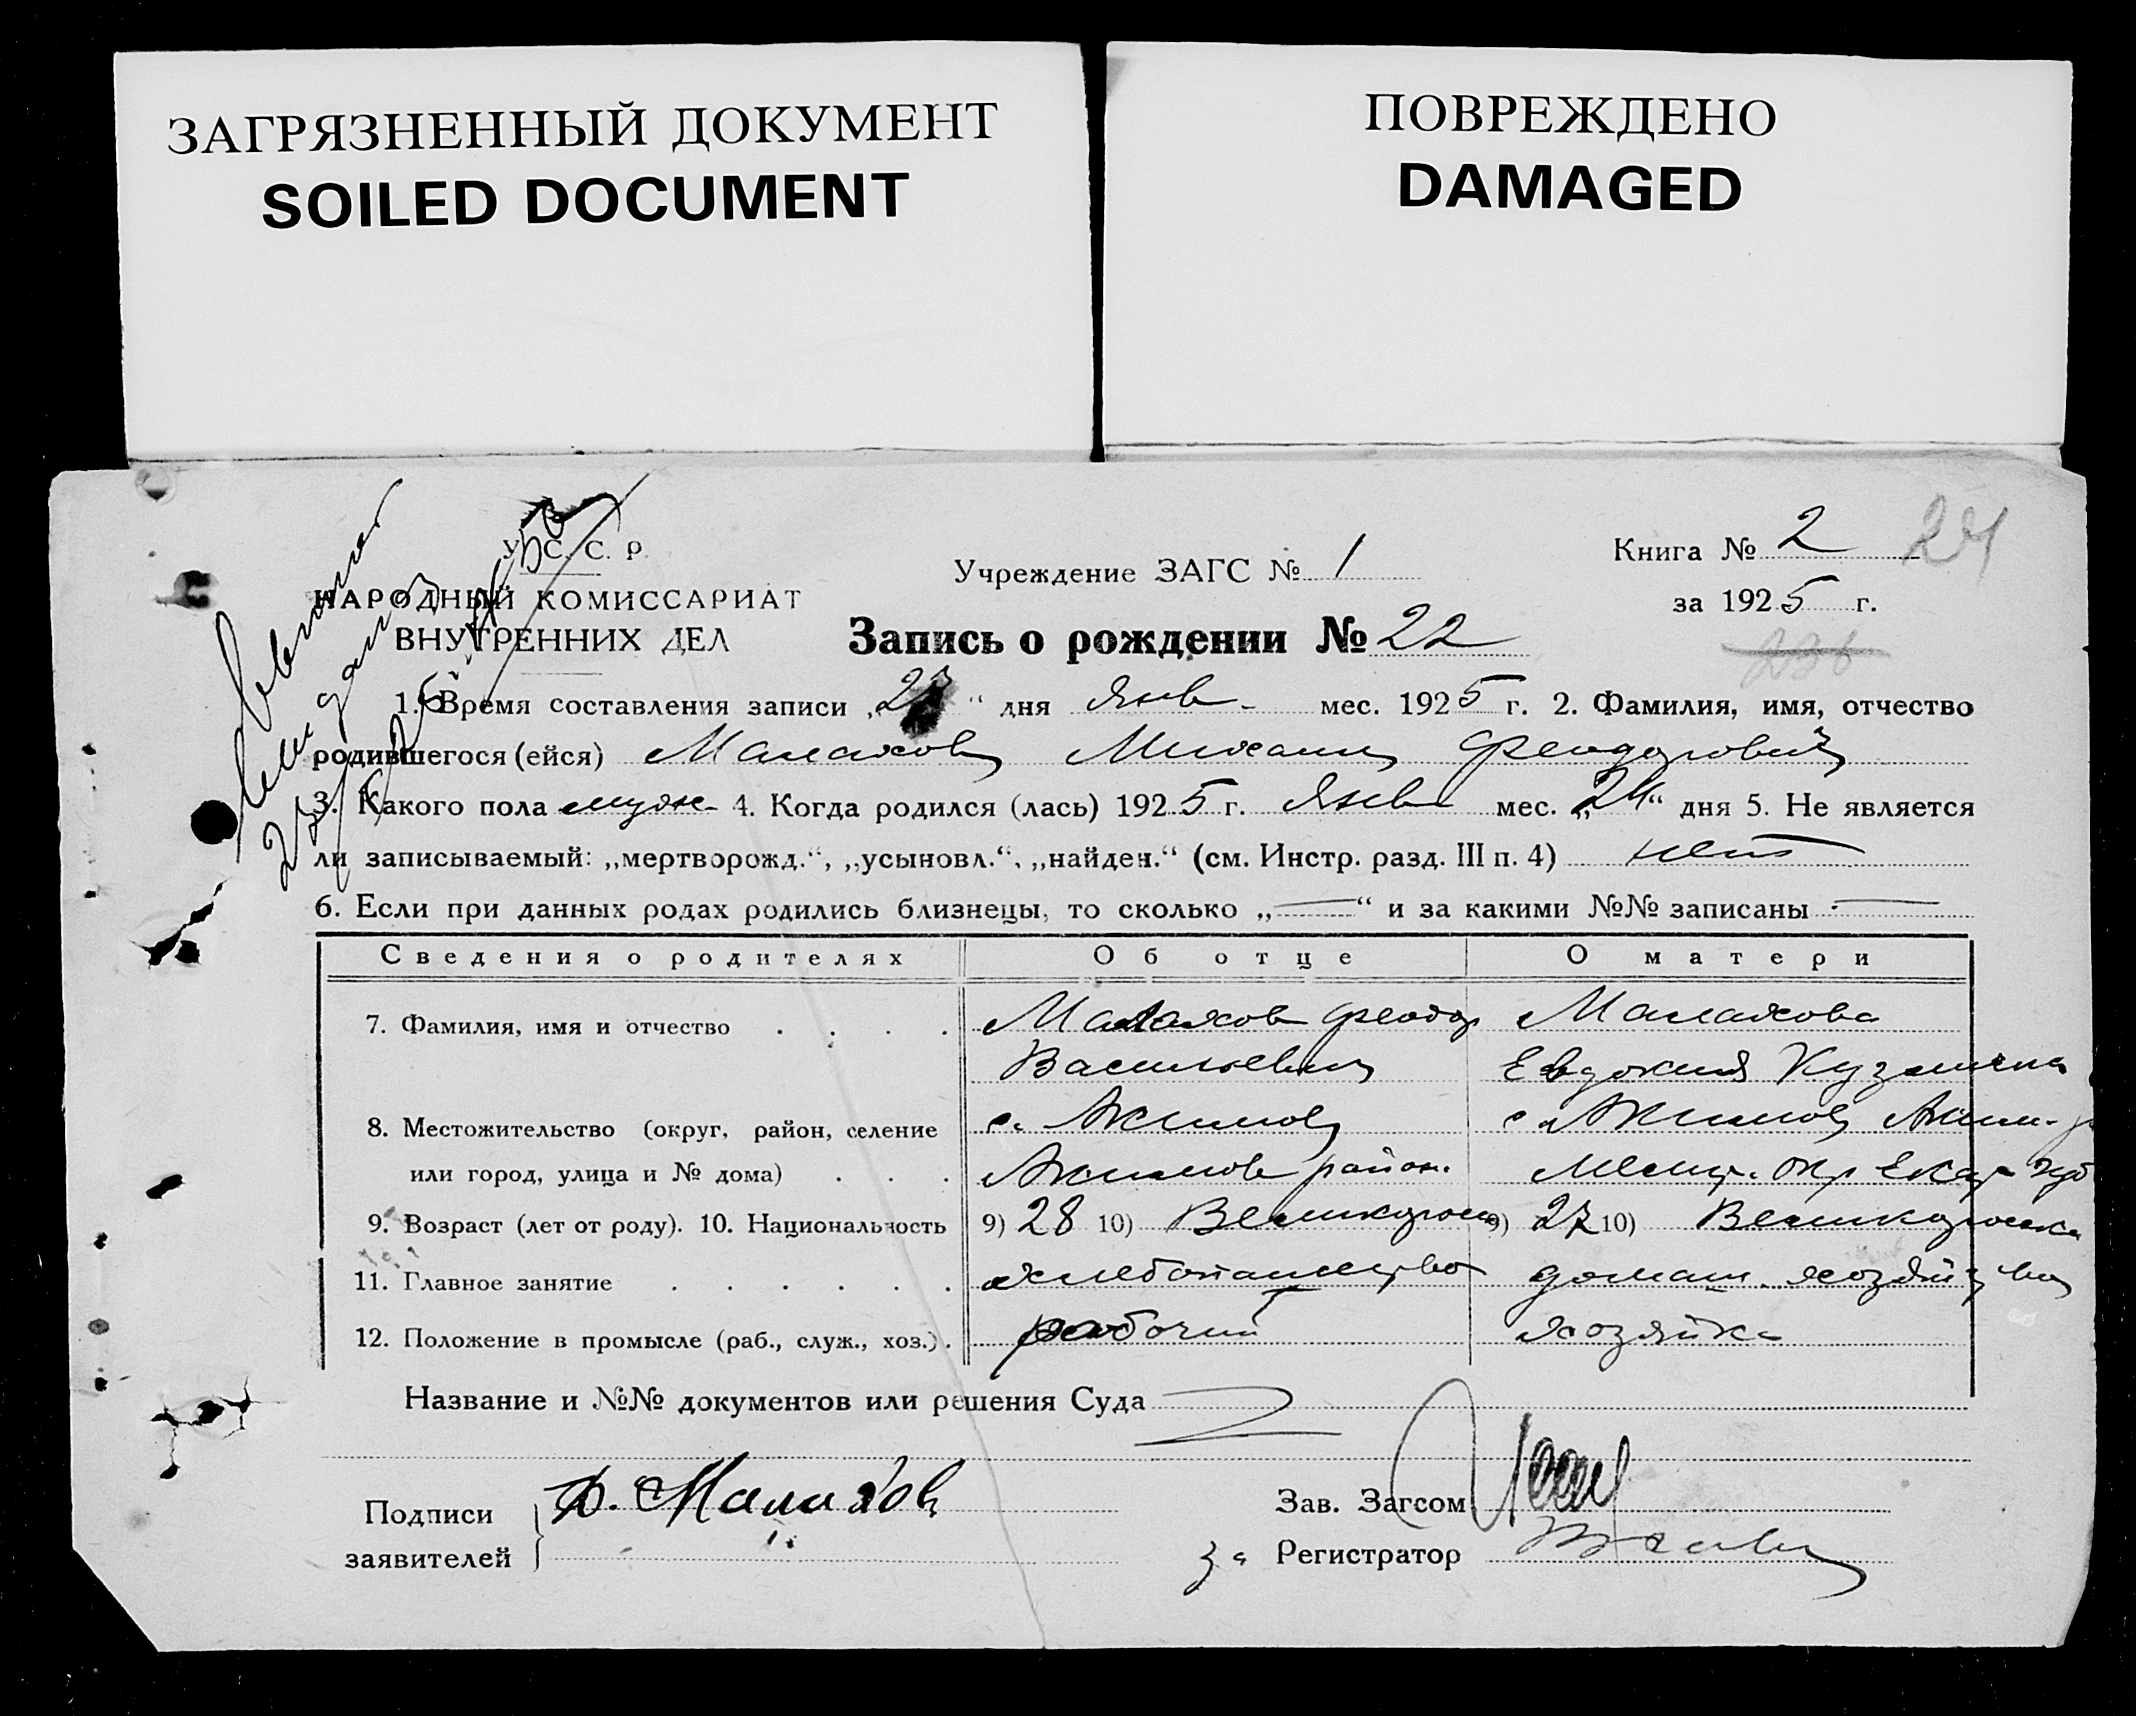 ЗАГРЯЗНЕННЫЙ ДОКУМЕНТ
SOILED DOCUMENT
ПОВРЕЖДЕНО
DAMAGED
У. С. С. Р.
НАРОДНЫЙ КОМИССАРИАТ
ВНУТРЕННИХ ДЕЛ
Учреждение ЗАГС № 1
Книга № 2
24
за 1925 г.
Запись о рождении № 22
236
1. Время составления записи „27“ дня Янв. мес. 1925 г. 2. Фамилия, имя, отчество
родившегося (ейся) Малахов Михаил Феодорович
3. Какого пола муж. 4. Когда родился (лась) 1925 г. Янв мес. „24“ дня 5. Не является
ли записываемый: „мертворожд.“, „усыновл.“, „найден.“ (см. Инстр. разд. III п. 4) нет
6. Если при данных родах родились близнецы, то сколько „—“ и за какими №№ записаны —
Сведения о родителях Об отце О матери
7. Фамилия, имя и отчество . . . . Малахов Феодор Малахова
Васильевич Евдокия Кузминична
8. Местожительство (округ, район, селение с. Акимов с. Акимов Аким.
или город, улица и № дома) . . . Акимов район. Мелит. окр Екат губ
9. Возраст (лет от роду). 10. Национальность 9) 28 10) Великоросс 9) 27 10) Великоросска
11. Главное занятие . . . . . . хлебопашество домаш. хозяйство
12. Положение в промысле (раб., служ., хоз.). рабочий хозяйка
Название и №№ документов или решения Суда
Подписи
заявителей
Ф. Малахов
Зав. Загсом
за Регистратор